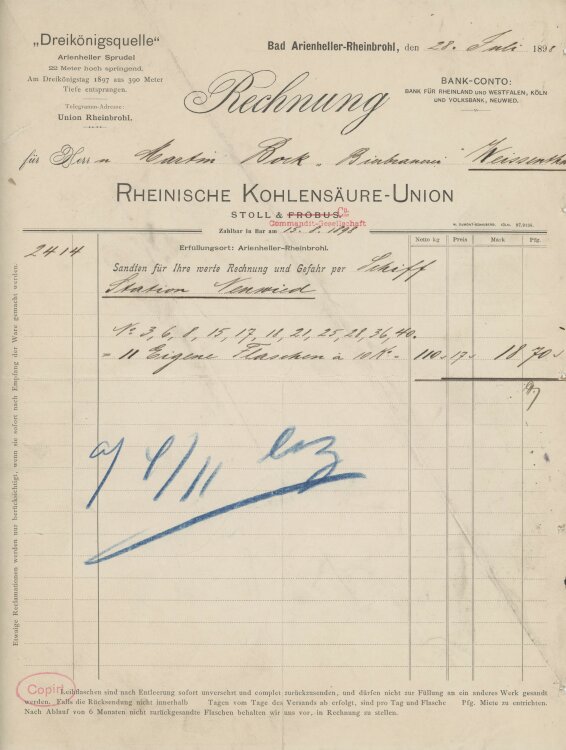 „Dreikönigsquelle“
Arienheller Sprudel
22 Meter hoch springend.
Am Dreikönigstag 1897 aus 390 Meter
Tiefe entsprungen.
Telegramm-Adresse:
Union Rheinbrohl.
Bad Arienheller-Rheinbrohl, den 28. Juli 1898
Rechnung
BANK-CONTO:
BANK FÜR RHEINLAND UND WESTFALEN, KÖLN
UND VOLKSBANK, NEUWIED.
für Herrn Martin Bock, Bierbrauerei Weissenthu
RHEINISCHE KOHLENSÄURE-UNION
STOLL & FROBUS. Co.
Commandit-Gesellschaft
Zahlbar in Bar am
M. DUMONT-SCHAUBERG, KÖLN.
Netto kg Preis Mark Pfg.
2414 Erfüllungsort: Arienheller-Rheinbrohl.
Sandten für Ihre werte Rechnung und Gefahr per Schiff
Station Neuwied
No 3, 6, 8, 15, 17, 18, 21, 25, 28, 36, 40.
= 11 Eigene Flaschen à 10 K° = 110 17 18,70
4/11
Etwaige Reclamationen werden nur berücksichtigt, wenn sie sofort nach Empfang der Ware gemacht werden.
Copirt
Leihflaschen sind nach Entleerung sofort unversehrt und complet zurückzusenden, und dürfen nicht zur Füllung an ein anderes Werk gesandt
werden. Falls die Rücksendung nicht innerhalb Tagen vom Tage des Versands ab erfolgt, sind pro Tag und Flasche Pfg. Miete zu entrichten.
Nach Ablauf von 6 Monaten nicht zurückgesandte Flaschen behalten wir uns vor, in Rechnung zu stellen.